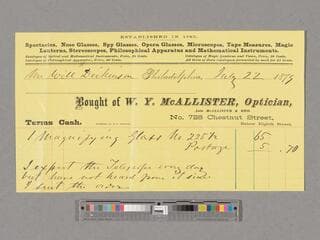 ESTABLISHED IN 1783.
Spectacles, Nose Glasses, Spy Glasses, Opera Glasses, Microscopes, Tape Measures, Magic
Lanterns, Stereoscopes, Philosophical Apparatus and Mathematical Instruments.
Will Dickinson Philadelphia, July 22 187
Bought of W. Y. McALLISTER, Optician,
No. 728 Chestnut Street,
TERMS CASH.
1 Magnifying Glass No. 225 65
Postage 5 .70
I expect the Telescope any day
but have not heard from it since
I sent the order